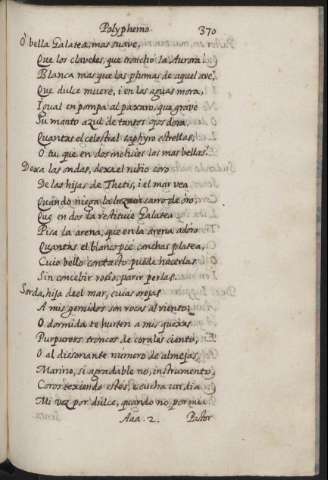 Polyphemo
370
O bella Galatea, mas suave,
Que los claveles, que troncho la Aurora
Blanca mas que las plumas de aquel ave,
Que dulce muere, i en las aguas mora,
Igual en pompa al paxaro, que grave
Su manto azul de tantos ojos dora,
Quantas el celestial zaphyro estrellas,
O tu que en dos incluies las mas bellas.
Dexa las ondas, dexa el rubio coro
De las hijas de Thetis, i el mar vea
Quando niega la luz un carro de oro,
Que en dos la restituie Galatea
Pisa la arena, que en la arena adoro
Quantas el blanco pie conchas platea,
Cuio bello contacto puede hacerlas
Sin concebir rocio, parir perlas.
Sorda, hija del mar, cuias orejas
A mis gemidos son rocas al viento;
O dormida te hurten a mis quexas
Purpureos troncos de corales ciento,
O al dissonante numero de almejas,
Marino, si agradable no, instrumento,
Coros texiendo estés, escucha un dia
Mi voz por dulce, quando no por mia.
Aaa . 2 .
Pastor